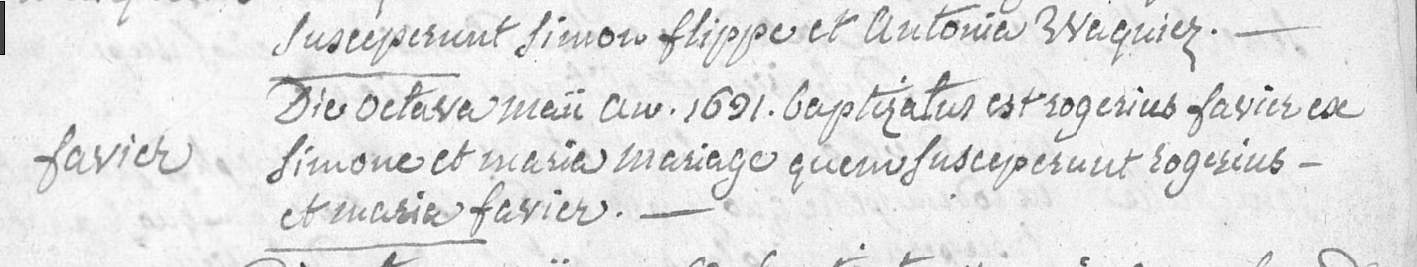 susceperunt simon flippe et Antonia Waquiez. —
Die octava maii an. 1691. baptizatus est rogerius favier ex
favier simone et maria mariage quem susceperunt rogerius –
et maria favier. —